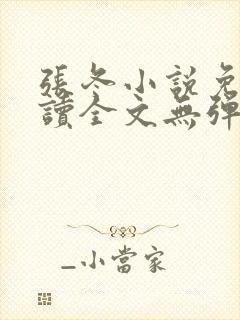 張冬小說免
讀全文無彈
_小當家